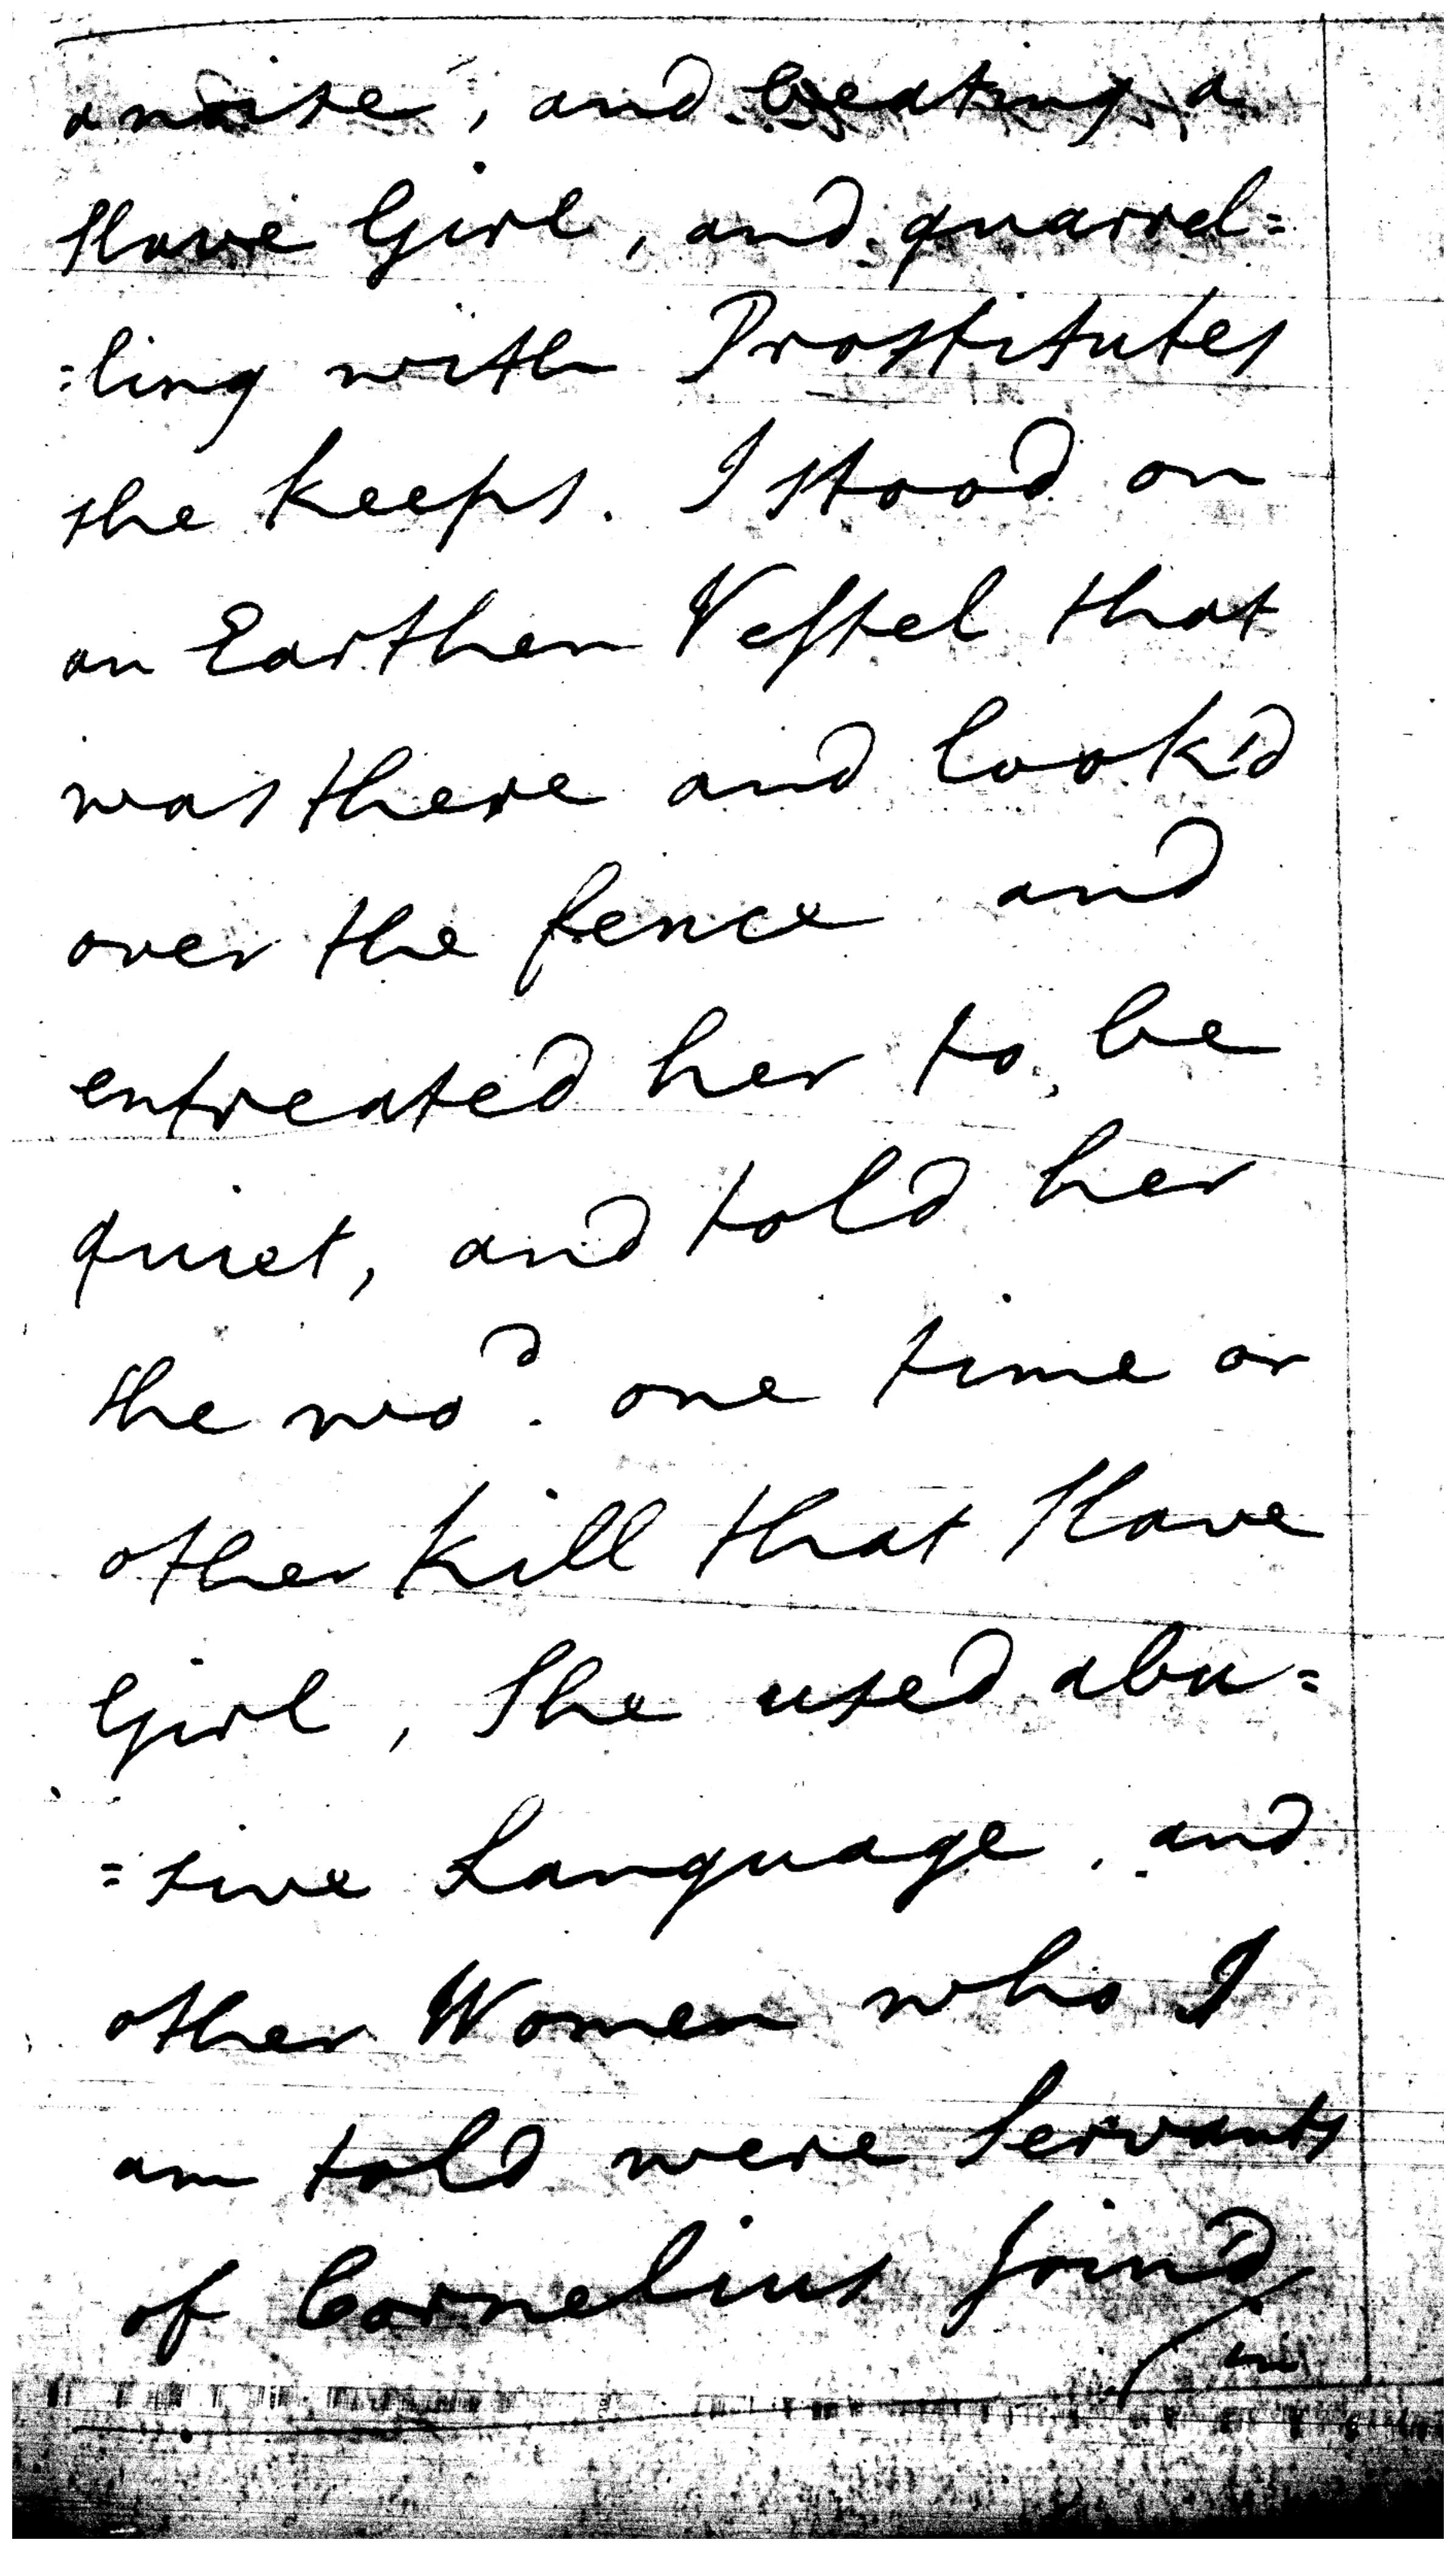 a noise, and beating a
Slave Girl, and quarrel=
=ling with Prostitutes
she keeps. I stood on
an Earthen Vessel that
was there and look'd
over the fence and
entreated her to be
quiet, and told her
she wod. one time or
other kill that Slave
Girl, She used abu=
=sive Language, and
other Women who I
am told were Servants
of Cornelius join'd
in